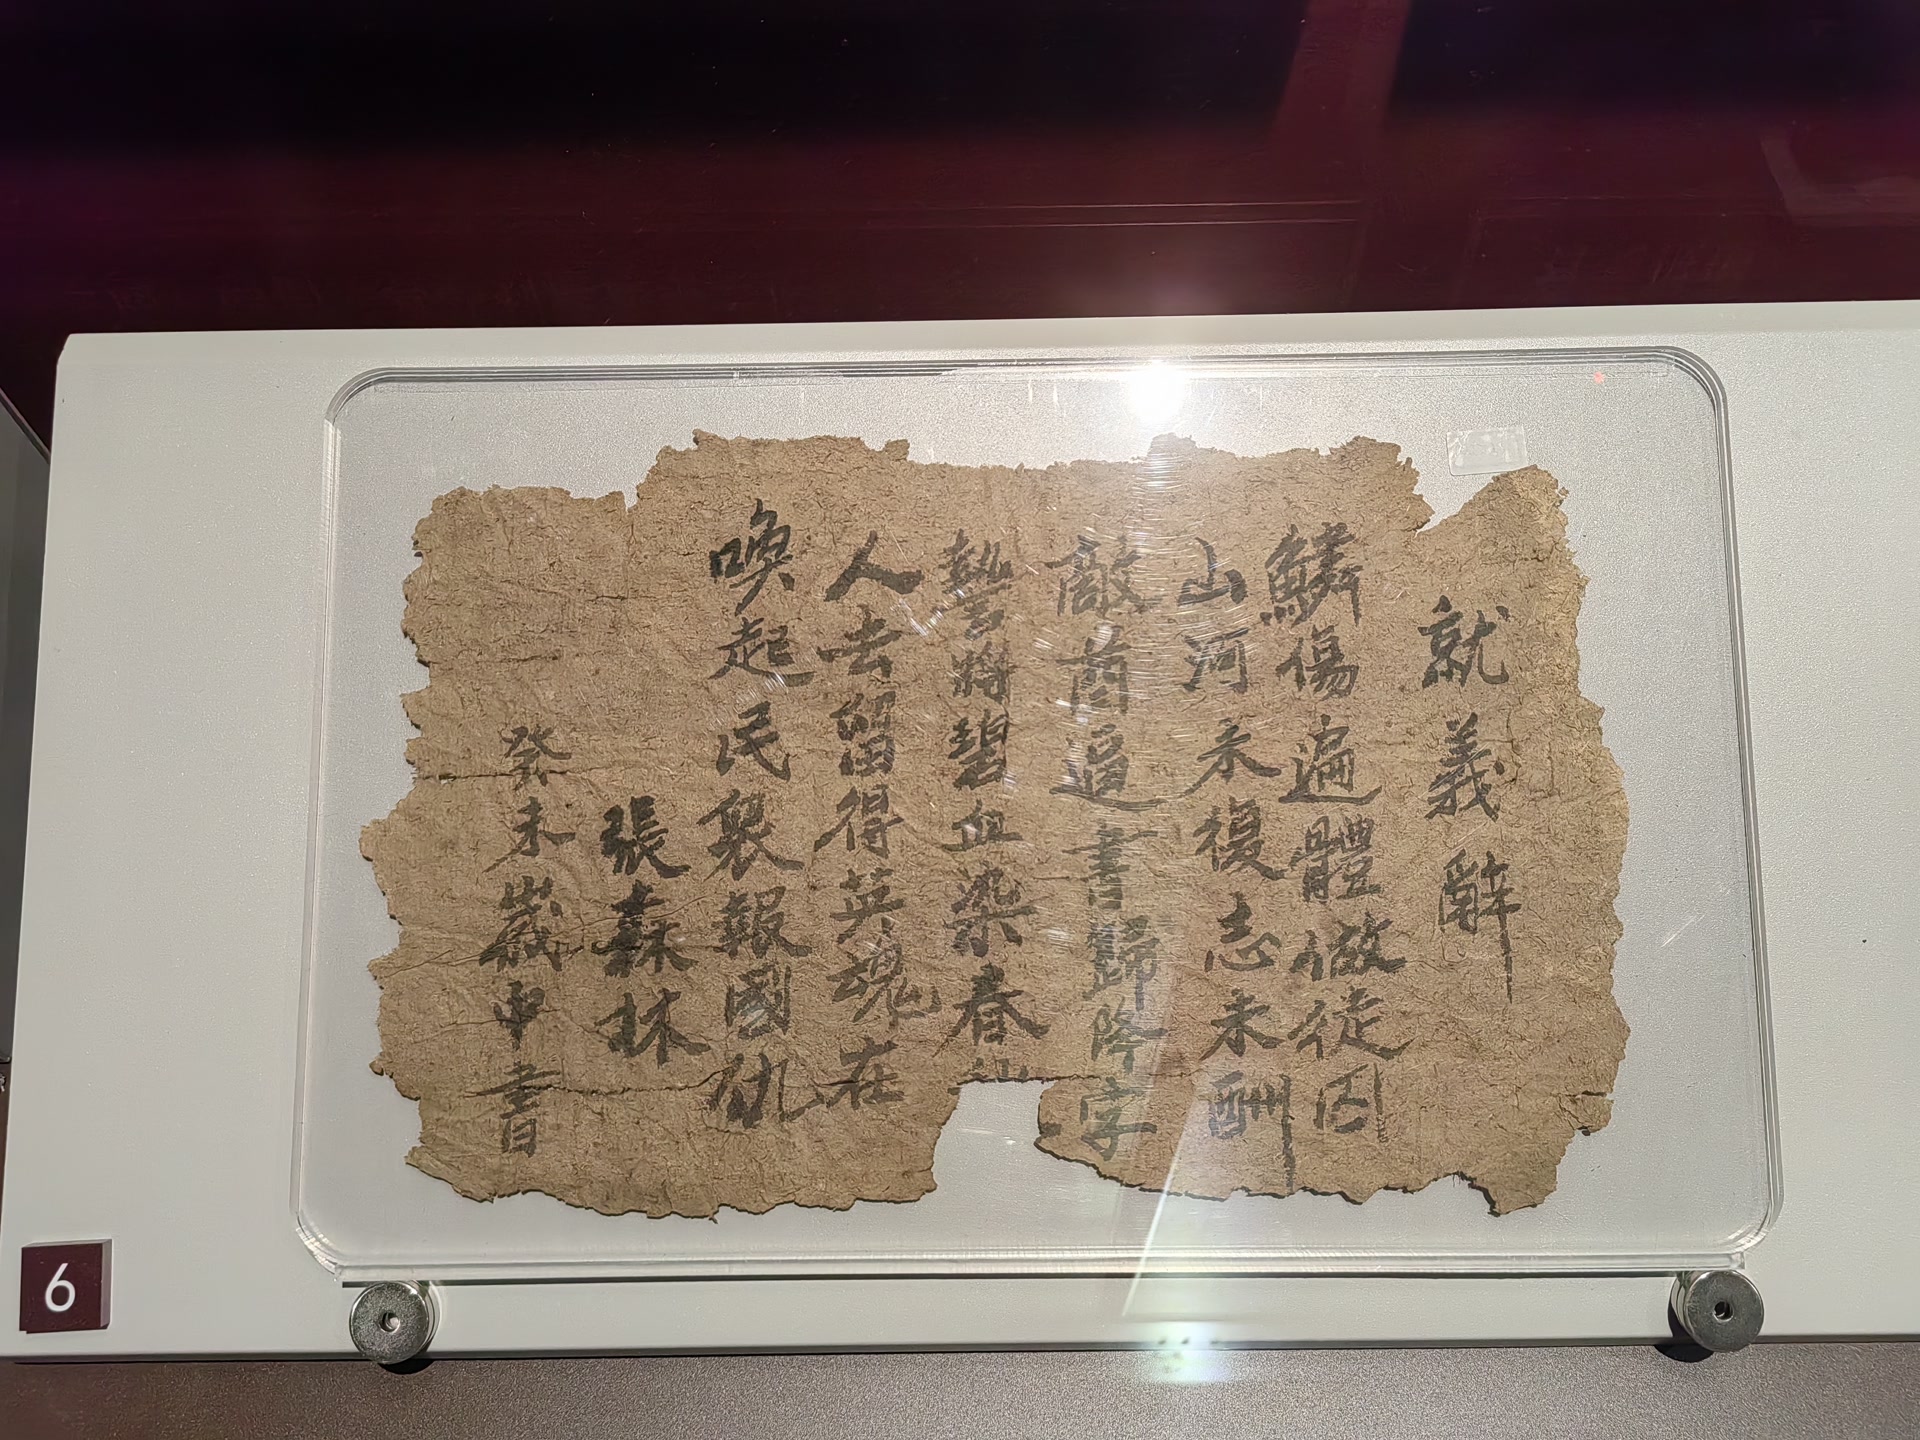 就義辭
鱗傷遍體做徒囚
山河未復志未酬
敵酋逼書歸降字
誓將碧血染春
人去留得英魂在
喚起民衆報國仇
張森林
癸未歲中書
6